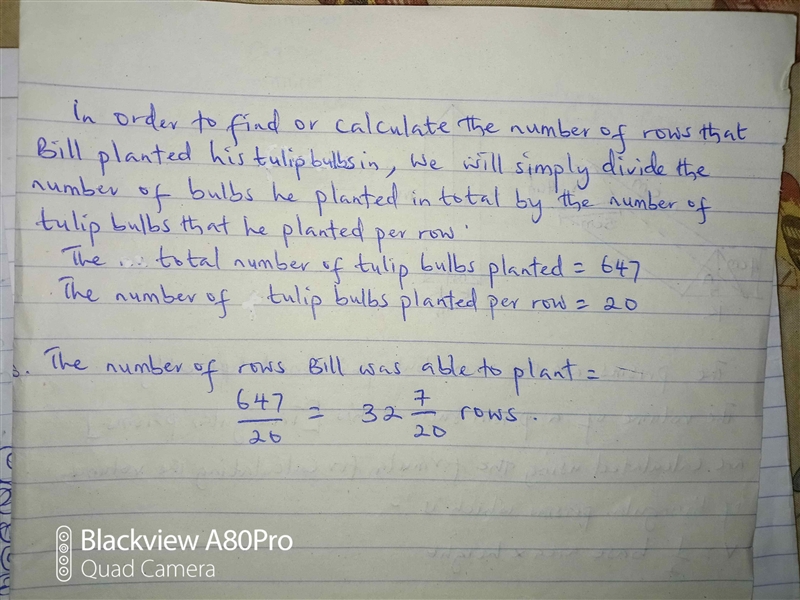 In order to find or calculate the number of rows that
Bill planted his tulip bulbs in, we will simply divide the
number of bulbs he planted in total by the number of
tulip bulbs that he planted per row.
The ... total number of tulip bulbs planted = 647
The number of tulip bulbs planted per row = 20
The number of rows Bill was able to plant =
647/20 = 32 7/20 rows.
Blackview A80Pro
Quad Camera